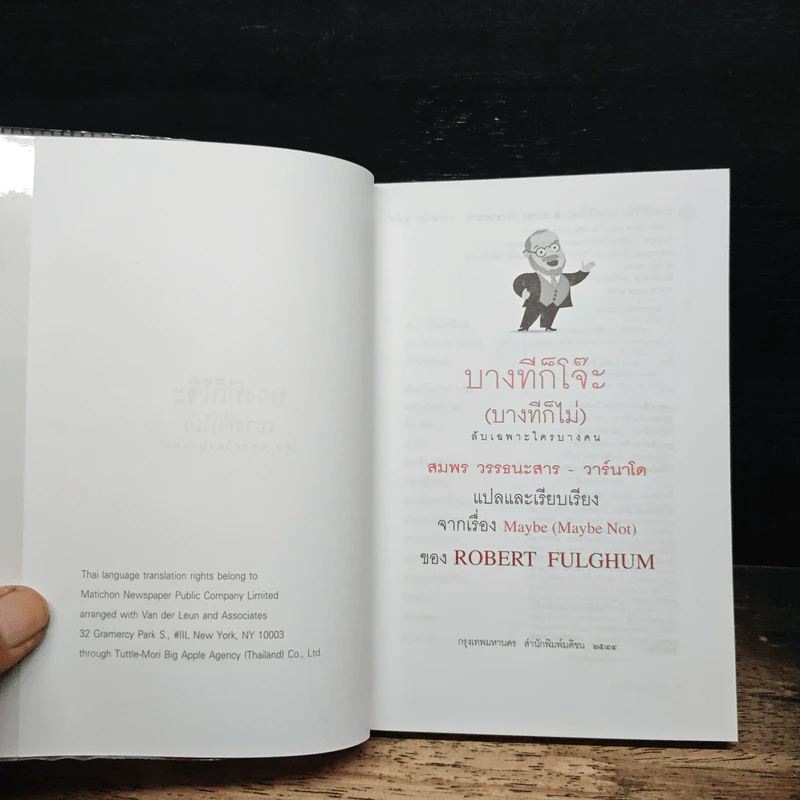 Thai language translation rights belong to
Matichon Newspaper Public Company Limited
arranged with Van der Leun and Associates
32 Gramercy Park S., #IIL New York, NY 10003
through Tuttle-Mori Big Apple Agency (Thailand) Co., Ltd.
บางทีก็โจ๊ะ
(บางทีก็ไม่)
ลับเฉพาะใครบางคน
สมพร วรรธนะสาร - วาร์นาโด
แปลและเรียบเรียง
จากเรื่อง Maybe (Maybe Not)
ของ ROBERT FULGHUM
กรุงเทพมหานคร สำนักพิมพ์มติชน ๒๕๔๔